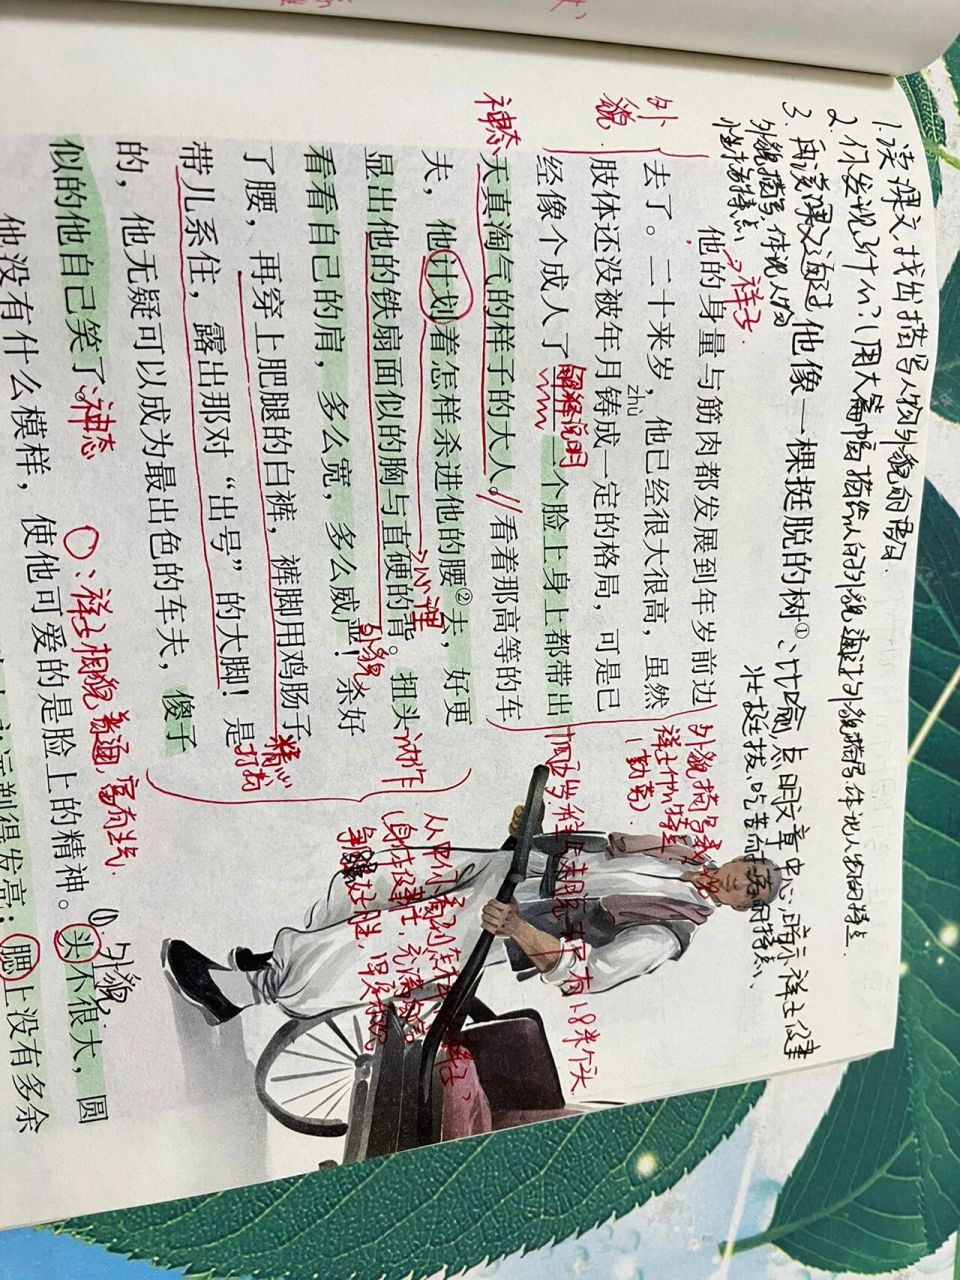 1.读课文找出描写人物外貌的语句.
2.你发现了什么?(用大篇幅描绘人的外貌,通过外貌描写,体现人物的特点.
3.再读课文
外貌描写,体现人物
他像一棵挺脱的树①,
比喻 点明文章中心,暗示祥子健
壮挺拔,吃苦耐劳的特点、
祥子.
他的身量与筋肉都发展到年岁前边
外貌
去了。二十来岁,他已经很大很高,虽然
zhù
肢体还没被年月铸成一定的格局,可是已
经像个成人了
解释说明
一个脸上身上都带出
神态
天真淘气的样子的大人。//看着那高等的车
夫,他计划着怎样杀进他的腰②去,好更
心理
显出他的铁扇面似的胸与直硬的背。扭头
动作
外貌
看看自己的肩,多么宽,多么威严!杀好
了腰,再穿上肥腿的白裤,裤脚用鸡肠子
精心
打扮
带儿系住,露出那对“出号”的大脚!是
的,他无疑可以成为最出色的车夫,傻子
似的他自己笑了。
神态
外貌描写
祥子
1.8米个头
祥子相貌普通,富有生气.
①外貌.
他没有什么模样,使他可爱的是脸上的精神。头不很大,圆
腮上没有多余
剃得发亮;